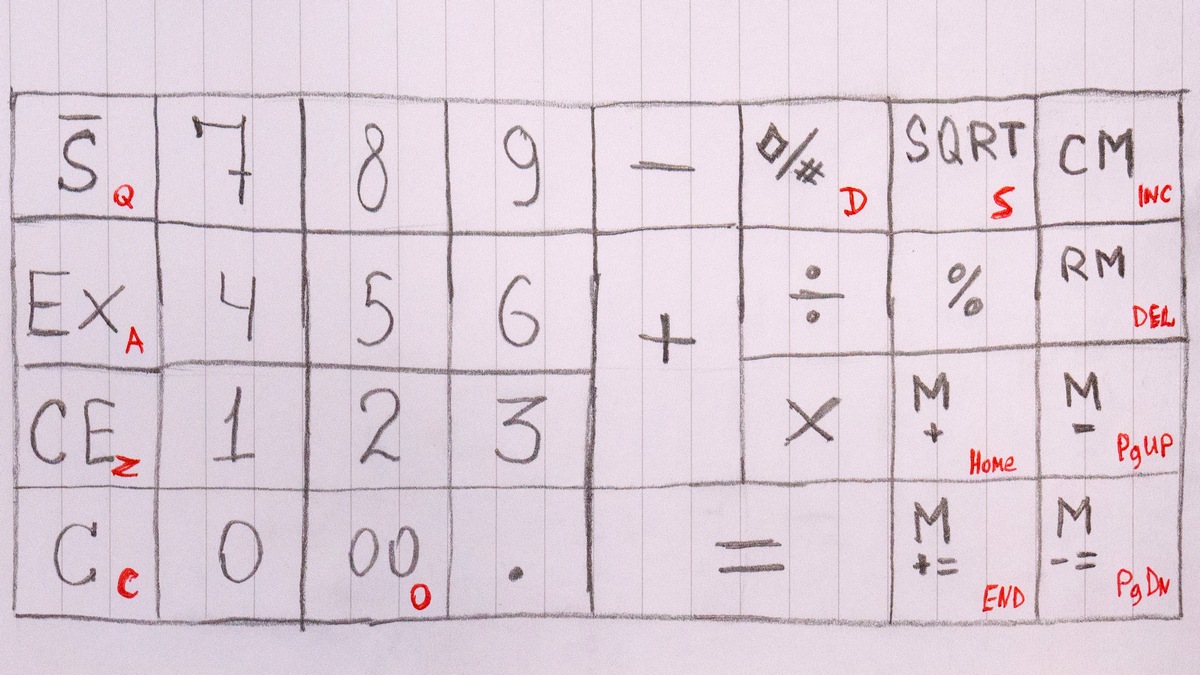 S̅ Q
7
8
9
−
◊/# D
SQRT S
CM INC
EX A
4
5
6
+
÷
%
RM DEL
CE Z
1
2
3
×
M
+ Home
M
- PgUP
C C
0
00 O
.
=
M
+= END
M
-= PgDN